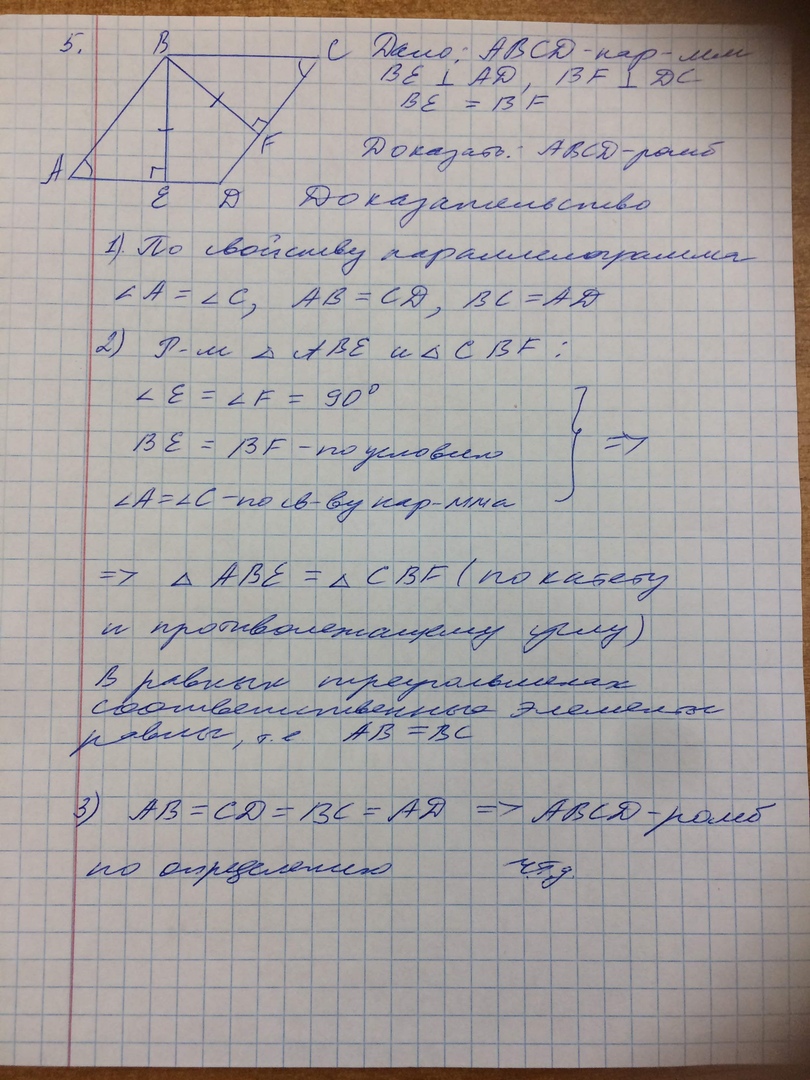 5.
B
C
A
E
D
F
Дано: ABCD-пар-мм
BE ⊥ AD, BF ⊥ DC
BE = BF
Доказать: ABCD-ромб
Доказательство
1). По свойству параллелограмма
∠A = ∠C, AB = CD, BC = AD
2) Р-м △ ABE и △ CBF:
∠E = ∠F = 90°
BE = BF - по условию
∠A=∠C-по св-ву пар-мма
} =>
=> △ ABE = △ CBF (по катету
и противолежащему углу)
В равных треугольниках
соответственные элементы
равны, т.е AB = BC
3) AB = CD = BC = AD => ABCD-ромб
по определению ч.т.д.